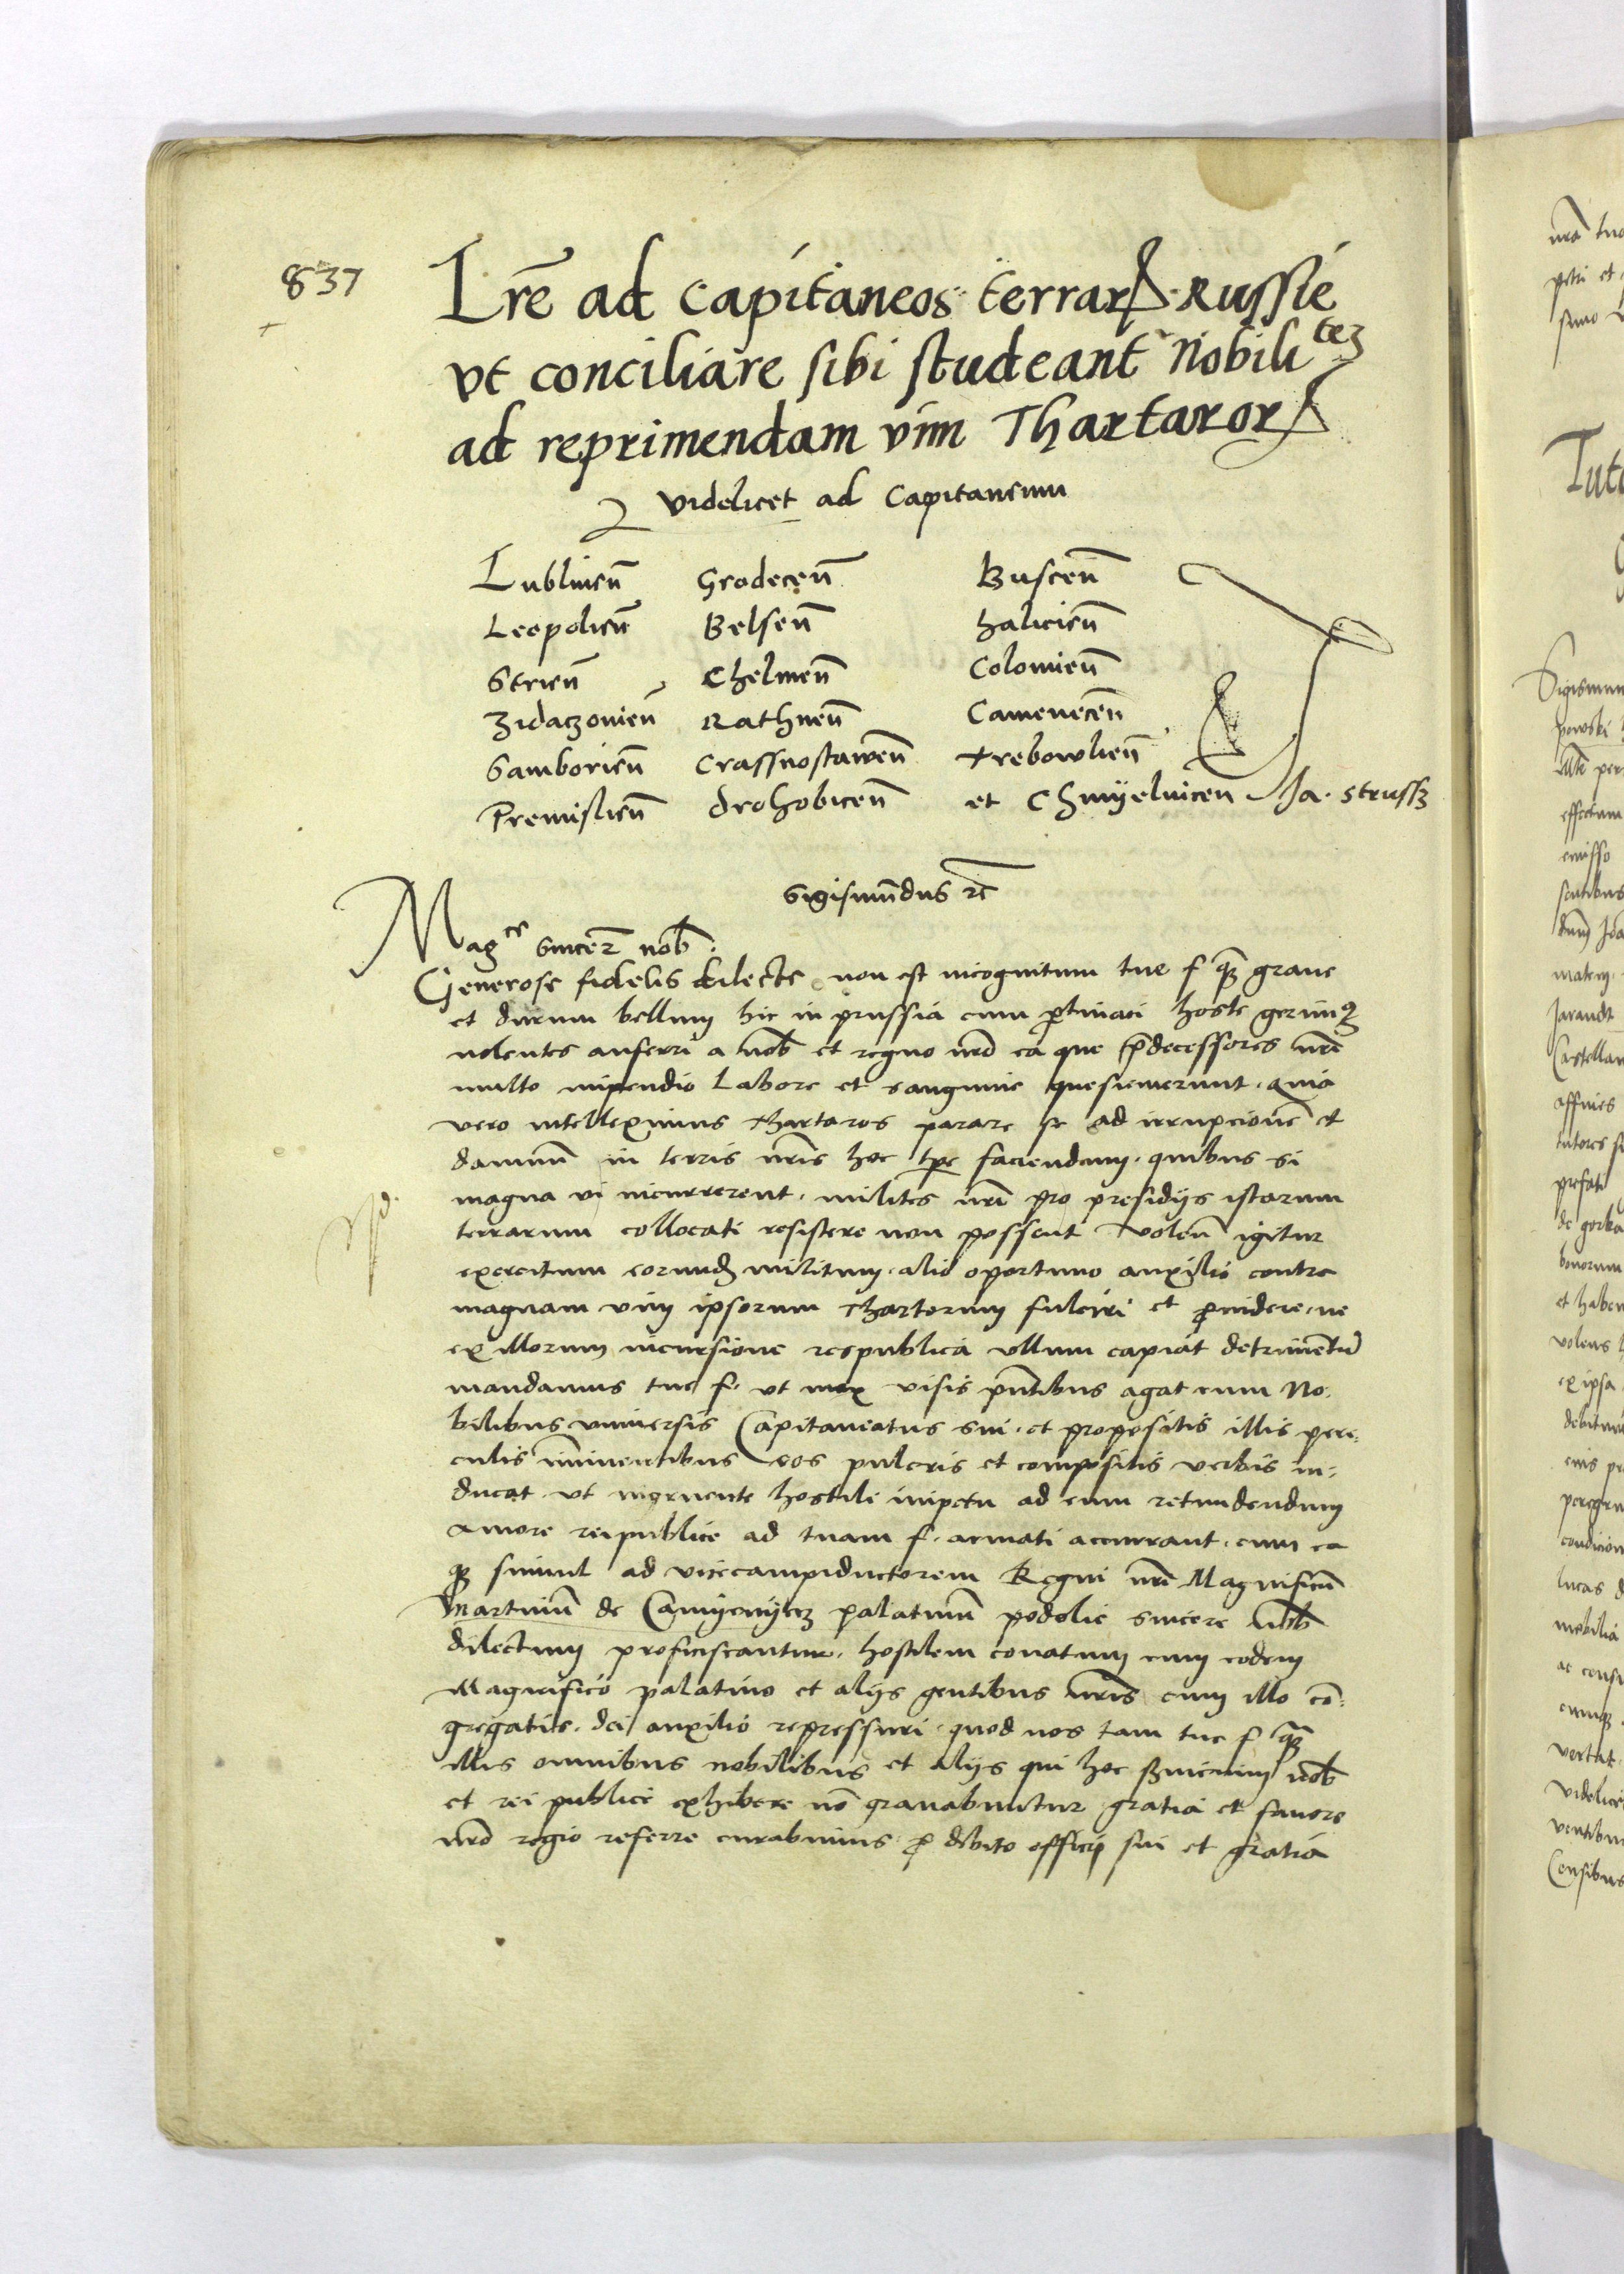 837
Lre ad Capitaneos terrarꝝ Russie
vt conciliare sibi studeant Nobili tez
ad reprimendam vim Thartarorꝝ
videlicet ad Capitaneum
Lublinen̄ Grodecen̄ Buscen̄
Leopolien̄ Belsen̄ halicien̄
Strien̄ Chelmen̄ Colomien̄
Zidaczovien̄ Rathnen̄ Camenecen̄
Samborien̄ Crassnostawen̄ Trebowlien̄
Premislien̄ drohobicen̄ et Chmyelnicen Ja. Strussz
Sigismūdus rc̄
Mag ce sincere nob̄.
Generose fidelis dilecte non est incognitum tue f qꝫ graue
et durum bellum hic in prussia cum ꝑtinaci hoste gerimꝰ
nolentes auferri a nob̄ et regno nr̄o ea que p̄decessores nr̄i
multo inpendio Labore et sanguine quesiuerunt. Quia
vero intelleximus thartaros parare se ad irrupcionē et
damnū in terris nr̄is hoc tꝑe faciendum. quibus si
magna vi incurrerent. milites nr̄i pro presidijs istarum
terrarum collocati resistere non possent volen̄ igitur
exercitum eorund̄ militum. alio oportuno auxilio contra
magnam vim ipsorum thartarorum fulciri et ꝓuidere. ne
ex illorum incursione respublica vllum capiat detrimentū
mandamus tue f. vt mox visis pn̄tibus agat cum No.
bilibus vniuersis Capitaneatus sui. et propositis illis peri.
culis īminentibus eos pulcris et compositis verbis in.
ducat. vt ingruente hostili impetu ad eum retundendum
amore reipublice ad tuam f. armati accurrant. cum ea
qꝫ simul ad vicecampiductorem Regni nr̄i Magnificū
Martinū de Camyenyecz palatinū podolie sincere nob̄
dilectum proficiscantur. hostilem conatum cum eodem
Magnifico palatino et alijs gentibus nr̄is cum illo cō.
gregatis. dei auxilio repressuri. quod nos tam tue f qꝫ
illis omnibus nobilibus et alijs qui hoc seruicium nob̄
et rei publice exhibere nō grauabuntur gratia et fauore
nr̄o regio referre curabimus ꝓ debito officij sui et gratia